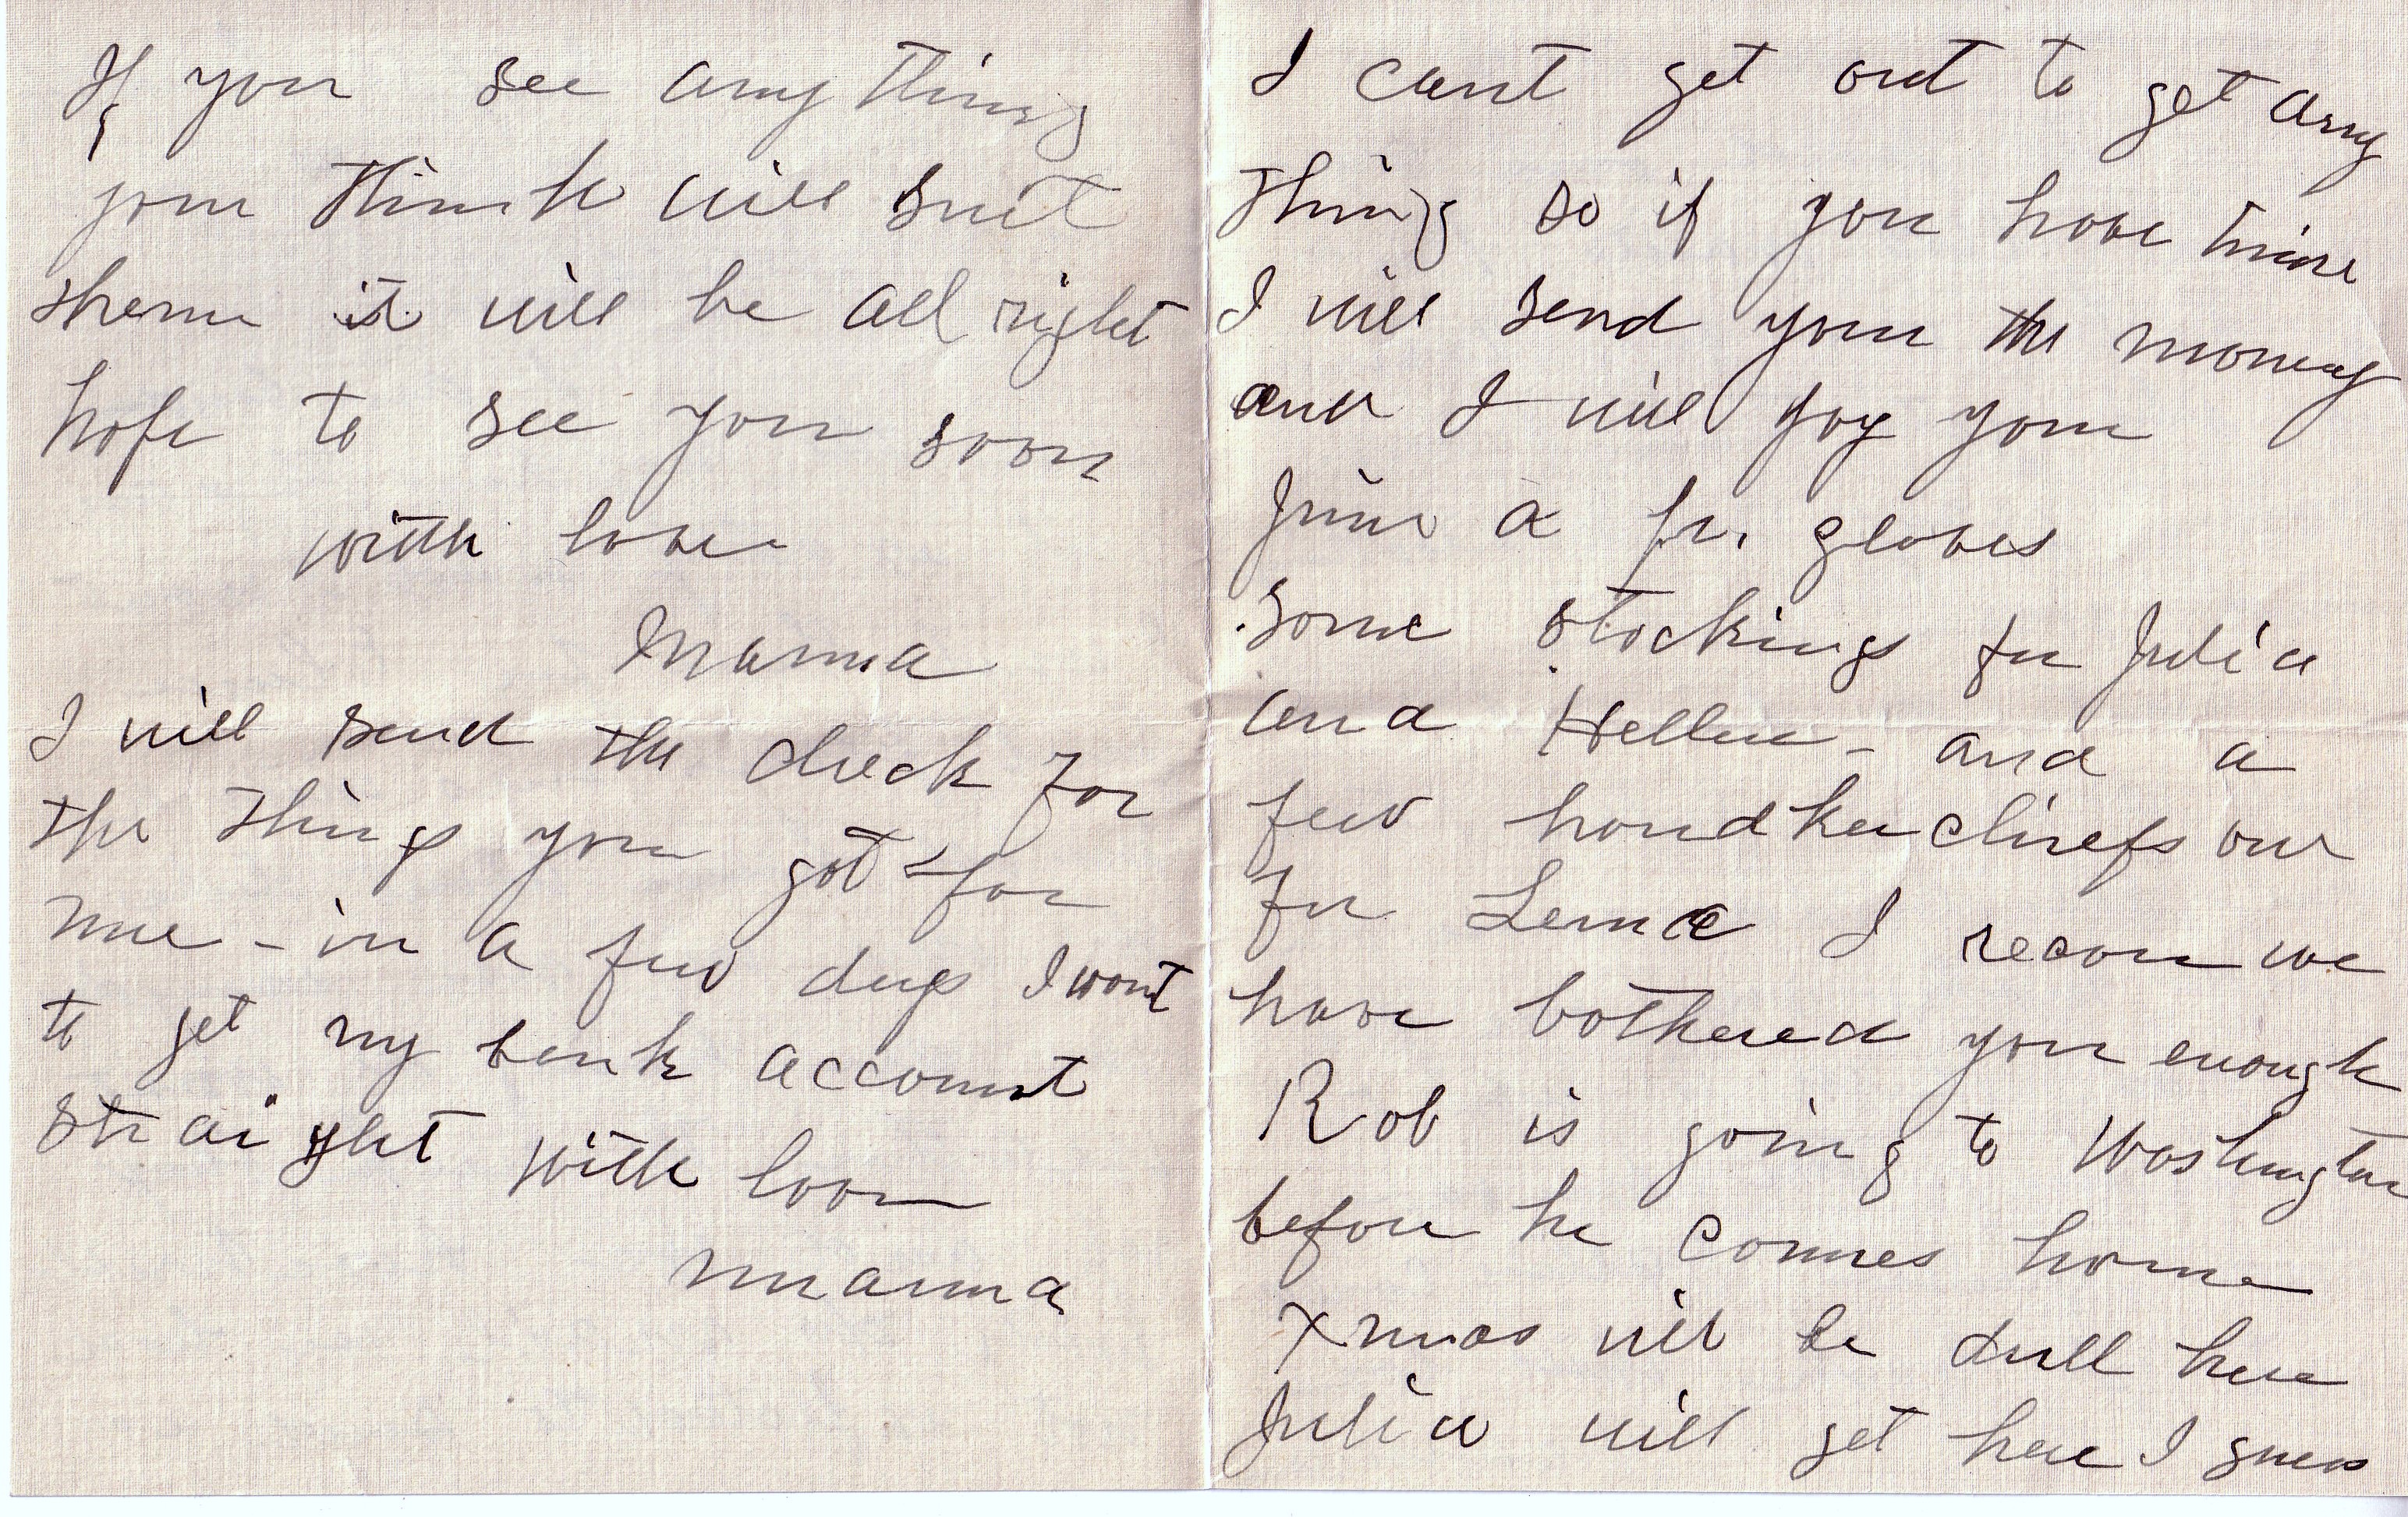 If you see anything
you think will suit
them it will be all right
hope to see you soon
with love
Mamma
I will send the check for
the things you got for
me - in a few days I want
to get my bank account
straight with love
Mamma
I cant get out to get any
thing so if you have time
I will send you the money
and I will pay you
a pr. gloves
some stockings for Julia
and Hellen - and a
few handkerchiefs
for I recon we
have bothered you enough
Rob is going to Washington
before he comes home
Xmas will be dull here
Julia will get here I guess